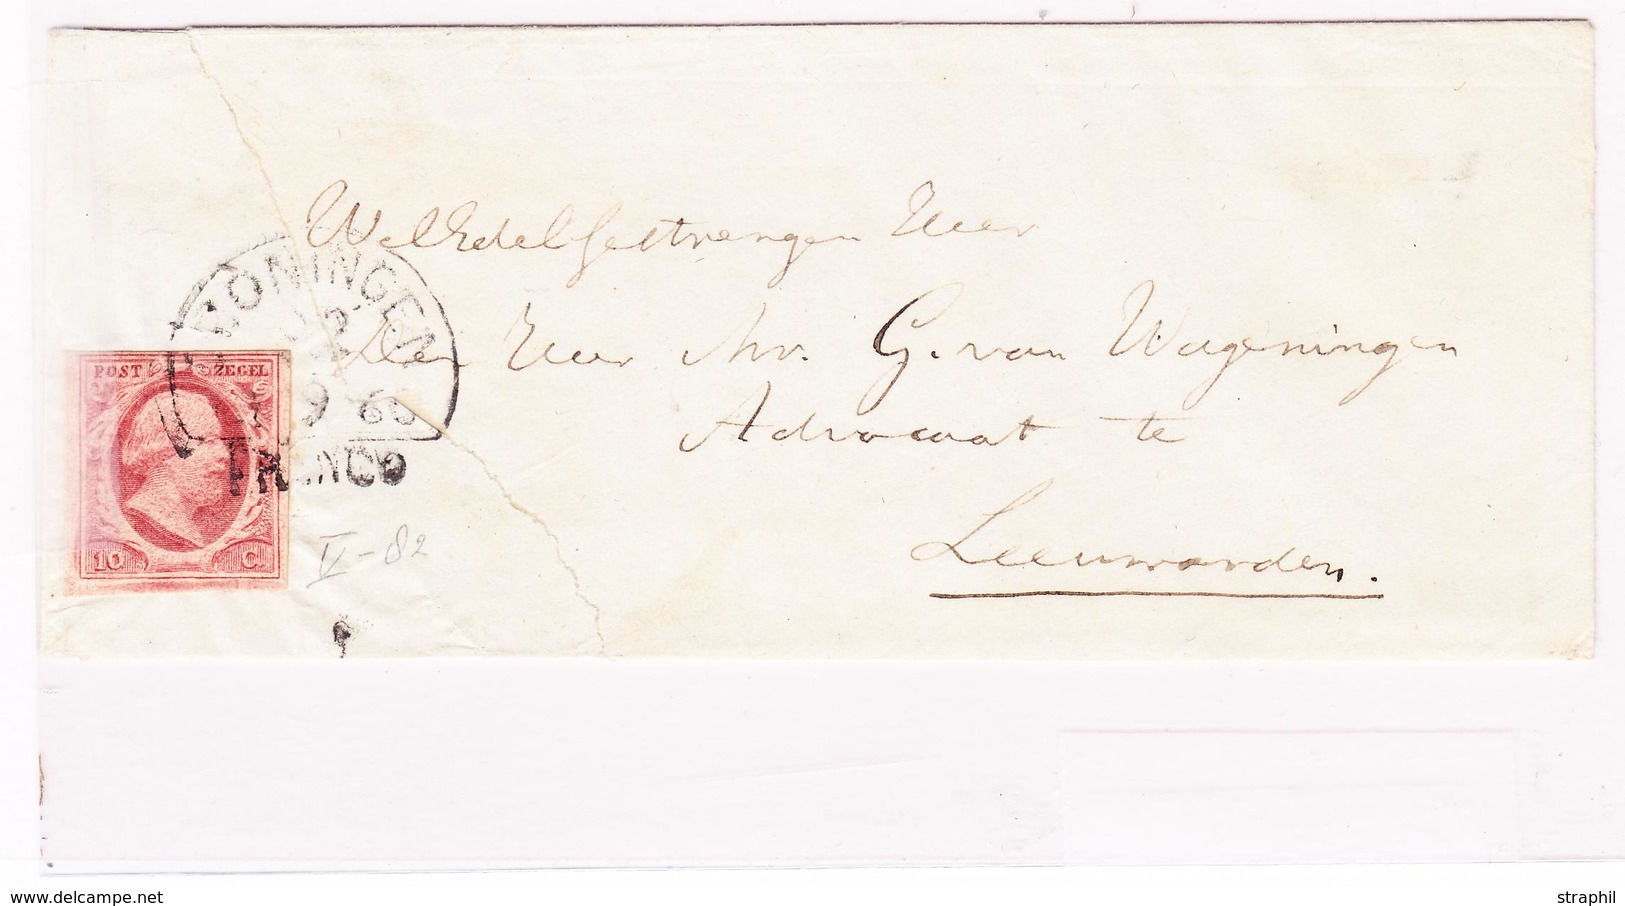 WelEdelGestrengen Heer
Den Heer Mr. G. van Wageningen
Advocaat te
Leeuwarden.
GRONINGEN
9 60
FRANCO
POST ZEGEL
10 C.
V-82
delcampe.net
straphil